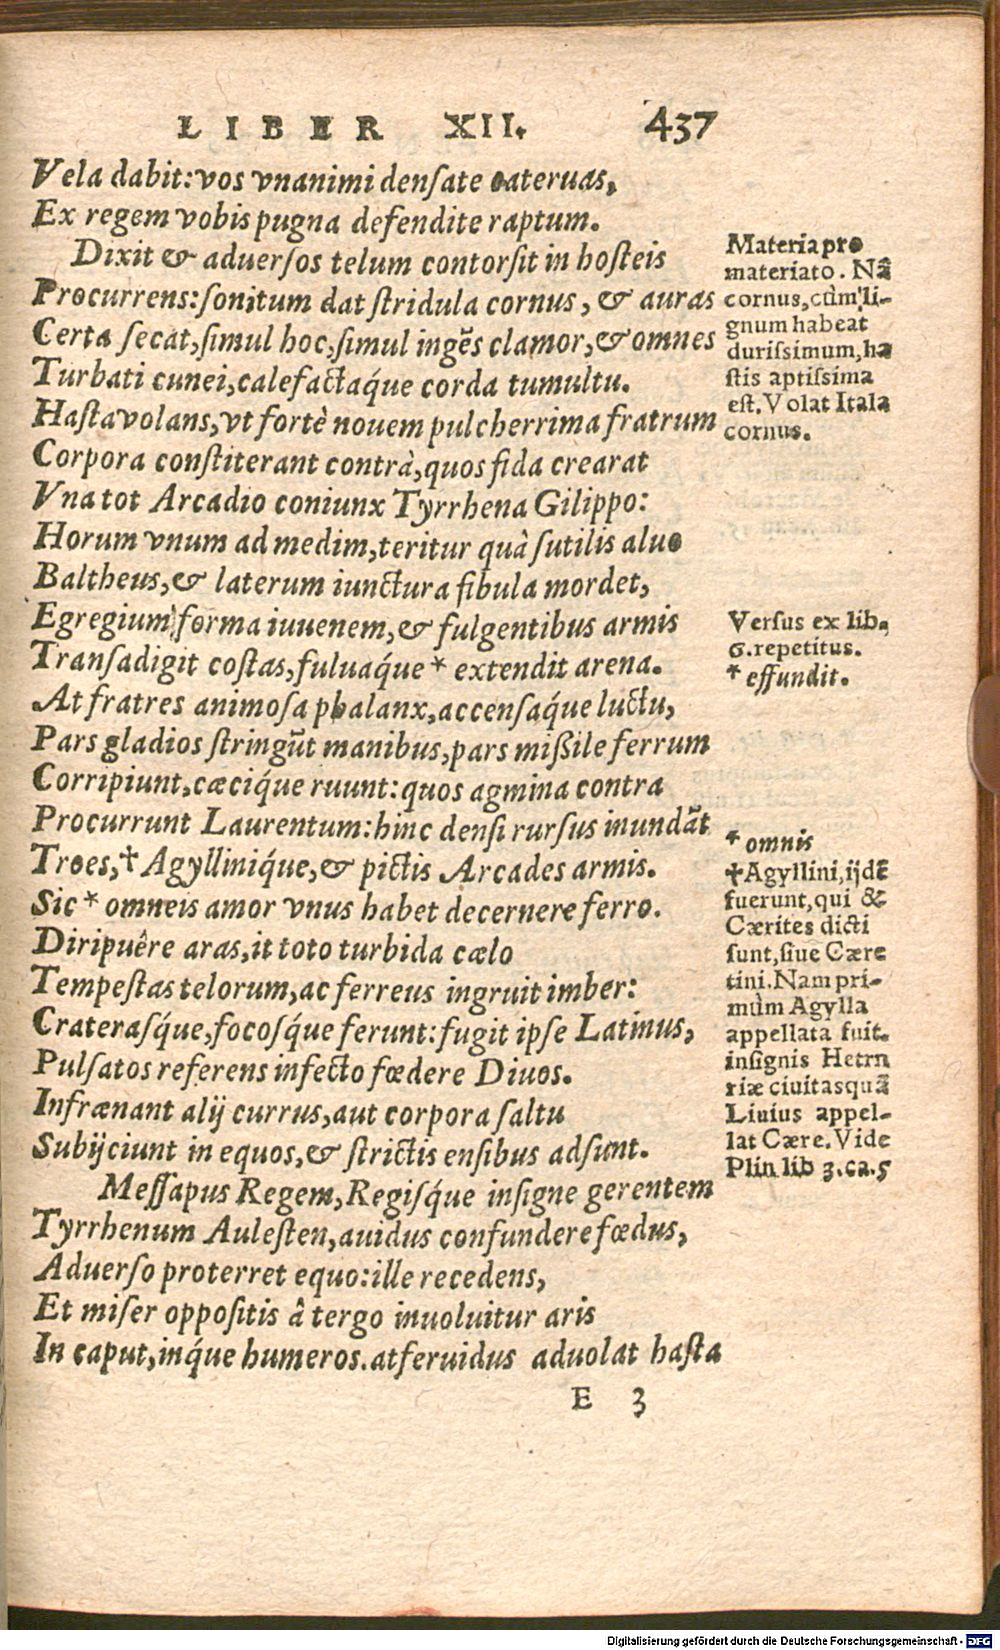 LIBER XII. 437
Vela dabit: vos vnanimi denſate cateruas,
Ex regem vobis pugna defendite raptum.
Dixit & aduerſos telum contorſit in hoſteis
Procurrens: ſonitum dat ſtridula cornus, & auras
Certa ſecat, ſimul hoc, ſimul ingẽs clamor, & omnes
Turbati cunei, calefactaq́ue corda tumultu.
Haſta volans, vt fortè nouem pulcherrima fratrum
Corpora conſtiterant contrà, quos fida crearat
Vna tot Arcadio coniunx Tyrrhena Gilippo:
Horum vnum ad medim, teritur quà ſutilis aluo
Baltheus, & laterum iunctura fibula mordet,
Egregium forma iuuenem, & fulgentibus armis
Tranſadigit coſtas, fuluaq́ue * extendit arena.
At fratres animoſa phalanx, accenſaq́ue luctu,
Pars gladios ſtringũt manibus, pars miſsile ferrum
Corripiunt, cæciq́ue ruunt: quos agmina contra
Procurrunt Laurentum: hinc denſi rurſus inundãt
Troes, † Agylliniq́ue, & pictis Arcades armis.
Sic * omneis amor vnus habet decernere ferro.
Diripuêre aras, it toto turbida cælo
Tempeſtas telorum, ac ferreus ingruit imber:
Crateraſq́ue, focoſq́ue ferunt: fugit ipſe Latinus,
Pulſatos referens infecto fœdere Diuos.
Infrænant alij currus, aut corpora ſaltu
Subijciunt in equos, & ſtrictis enſibus adſunt.
Meſſapus Regem, Regiſq́ue inſigne gerentem
Tyrrhenum Auleſten, auidus confundere fœdus,
Aduerſo proterret equo: ille recedens,
Et miſer oppoſitis â tergo inuoluitur aris
In caput, inq́ue humeros. at feruidus aduolat haſta
E 3
Materia pro
materiato. Nã
cornus, cùm li-
gnum habeat
duriſsimum, ha
ſtis aptiſsima
eſt. Volat Itala
cornus.
Verſus ex lib.
6. repetitus.
* effundit.
* omnis
† Agyllini, ijdẽ
fuerunt, qui &
Cærites dicti
ſunt, ſiue Cære
tini. Nam pri-
mùm Agylla
appellata fuit.
inſignis Hetru
riæ ciuitas quã
Liuius appel-
lat Cære. Vide
Plin lib 3. ca. 5
Digitalisierung gefördert durch die Deutsche Forschungsgemeinschaft - DFG